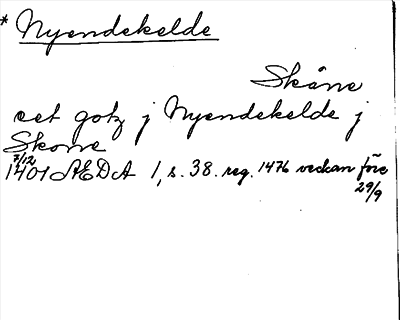 * Nyendekelde
Skåne
eet gotz j Nyendekelde j
Skone
7/12
1401 ÆDA 1, s. 38. reg. 1476 veckan före
29/9